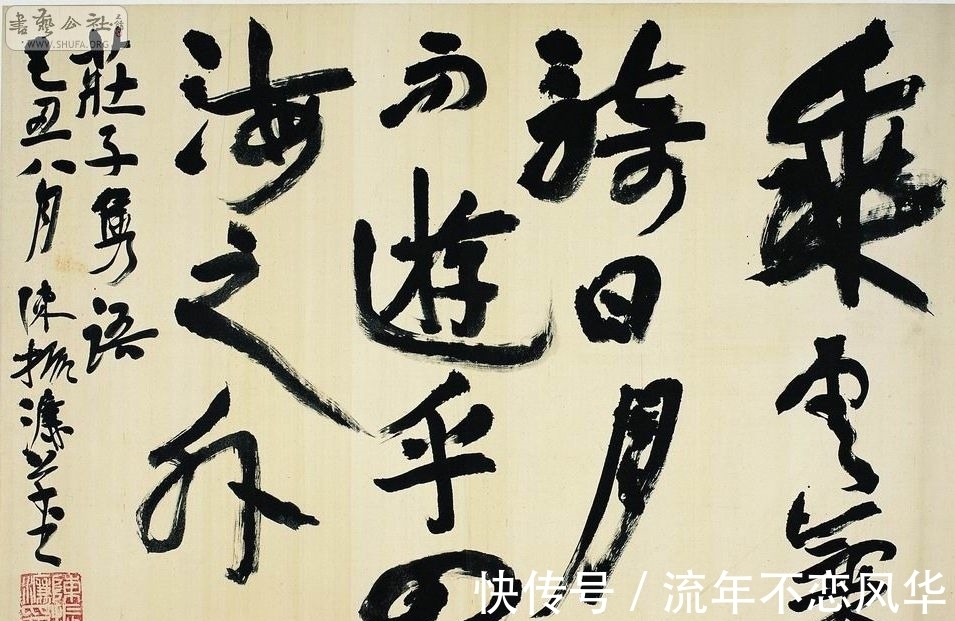 乘雲氣
騎日月
而遊乎四
海之外
莊子雋語
己丑八月 陳振濂草
書藝公社
WWW.SHUFA.ORG
快传号 / 流年不恋风华